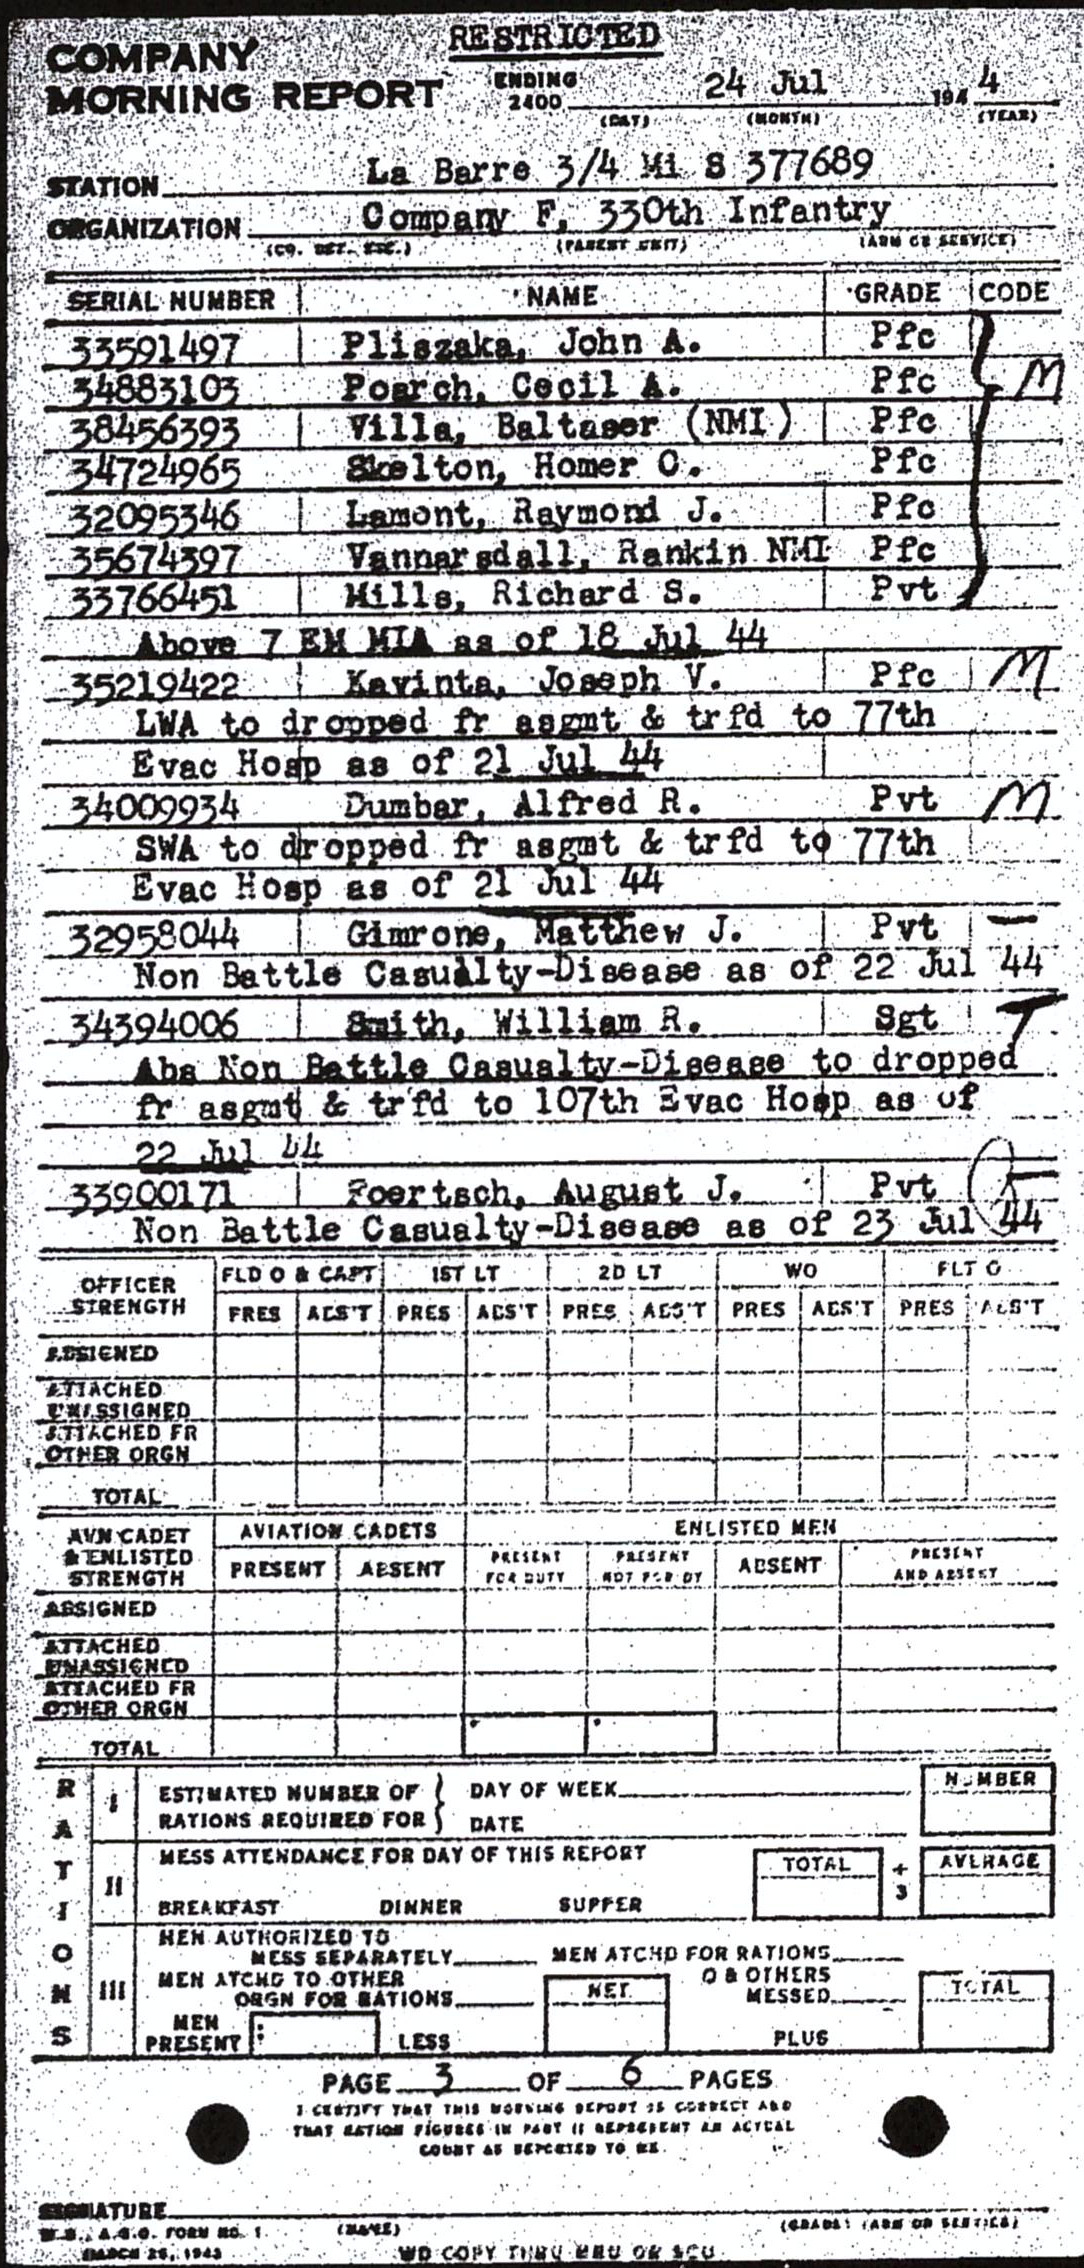 RESTRICTED
COMPANY
MORNING REPORT
ENDING
2400 24 Jul 1944
(DAY) (MONTH) (YEAR)
STATION La Barre 3/4 Mi S 377689
ORGANIZATION Company F, 330th Infantry
(CO. DET. ETC.) (PARENT UNIT) (ARM OR SERVICE)
SERIAL NUMBER NAME GRADE CODE
33591497 Pliszaka, John A. Pfc
34883103 Poarch, Cecil A. Pfc M
38456393 Villa, Baltaser (NMI) Pfc
34724965 Skelton, Homer O. Pfc
32095346 Lamont, Raymond J. Pfc
35674397 Vannarsdall, Rankin NMI Pfc
33766451 Mills, Richard S. Pvt
Above 7 EM MIA as of 18 Jul 44
35219422 Kavinta, Joseph V. Pfc M
LWA to dropped fr asgmt & trfd to 77th
Evac Hosp as of 21 Jul 44
34009934 Dumbar, Alfred R. Pvt M
SWA to dropped fr asgmt & trfd to 77th
Evac Hosp as of 21 Jul 44
32958044 Gimrone, Matthew J. Pvt —
Non Battle Casualty-Disease as of 22 Jul 44
34394006 Smith, William R. Sgt T
Abs Non Battle Casualty-Disease to dropped
fr asgmt & trfd to 107th Evac Hosp as of
22 Jul 44
33900171 Foertsch, August J. Pvt
Non Battle Casualty-Disease as of 23 Jul 44
OFFICER
STRENGTH
FLD O & CAPT 1ST LT 2D LT WO FLT O
PRES ABS'T PRES ABS'T PRES ABS'T PRES ABS'T PRES ABS'T
ASSIGNED
ATTACHED
UNASSIGNED
ATTACHED FR
OTHER ORGN
TOTAL
AVN CADET
& ENLISTED
STRENGTH
AVIATION CADETS ENLISTED MEN
PRESENT ABSENT PRESENT FOR DUTY PRESENT NOT FOR DY ABSENT PRESENT AND ABSENT
ASSIGNED
ATTACHED
UNASSIGNED
ATTACHED FR
OTHER ORGN
TOTAL
RATIONS
I ESTIMATED NUMBER OF DAY OF WEEK NUMBER
RATIONS REQUIRED FOR DATE
II MESS ATTENDANCE FOR DAY OF THIS REPORT TOTAL ÷ 3 AVERAGE
BREAKFAST DINNER SUPPER
III MEN AUTHORIZED TO
MESS SEPARATELY MEN ATCHD FOR RATIONS
MEN ATCHD TO OTHER
ORGN FOR RATIONS NET O & OTHERS
MESSED TOTAL
MEN
PRESENT LESS PLUS
PAGE 3 OF 6 PAGES
I CERTIFY THAT THIS MORNING REPORT IS CORRECT AND
THAT RATION FIGURES IN PART II REPRESENT AN ACTUAL
COUNT AS REPORTED TO ME.
SIGNATURE
W.D., A.G.O. FORM NO. 1 (NAME) (GRADE) (ARM OR SERVICE)
MARCH 26, 1943
WD COPY THRU MRU OR SCU